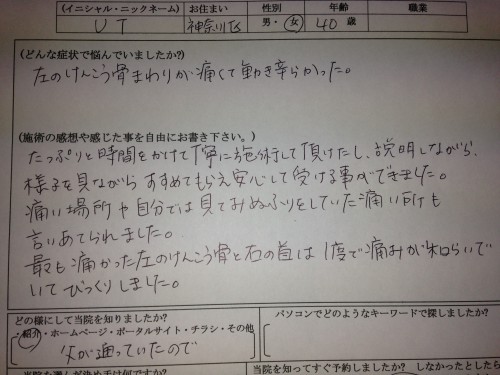 (イニシャル・ニックネーム) お住まい 性別 年齢 職業
U T 神奈川区 男・女 40 歳
(どんな症状で悩んでいましたか?)
左のけんこう骨まわりが痛くて動き辛らかった。
(施術の感想や感じた事を自由にお書き下さい。)
たっぷりと時間をかけて丁寧に施術して頂けたし、説明しながら、
様子を見ながらすすめてもらえ安心して受ける事ができました。
痛い場所や自分では見てみぬふりをしていた痛い所も
言いあてられました。
最も痛かった左のけんこう骨と右の首は1度で痛みが和らいで
いてびっくりしました。
どの様にして当院を知りましたか?
・紹介・ホームページ・ポータルサイト・チラシ・その他
父が通っていたので
パソコンでどのようなキーワードで探しましたか?
当院を選んだ決め手は何ですか?
当院を知ってすぐ予約しましたか? しなかったとしたら